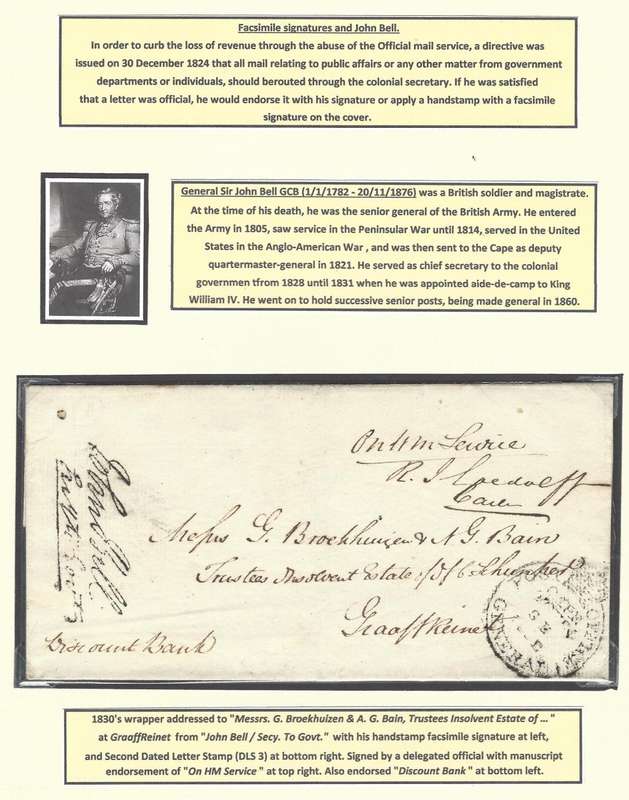 Facsimile signatures and John Bell.
In order to curb the loss of revenue through the abuse of the Official mail service, a directive was
issued on 30 December 1824 that all mail relating to public affairs or any other matter from government
departments or individuals, should berouted through the colonial secretary. If he was satisfied
that a letter was official, he would endorse it with his signature or apply a handstamp with a facsimile
signature on the cover.
General Sir John Bell GCB (1/1/1782 - 20/11/1876) was a British soldier and magistrate.
At the time of his death, he was the senior general of the British Army. He entered
the Army in 1805, saw service in the Peninsular War until 1814, served in the United
States in the Anglo-American War , and was then sent to the Cape as deputy
quartermaster-general in 1821. He served as chief secretary to the colonial
governmen tfrom 1828 until 1831 when he was appointed aide-de-camp to King
William IV. He went on to hold successive senior posts, being made general in 1860.
On H M Service
R. J.
John Bell
Messrs G. Broekhuizen & A G. Bain
Trustees Insolvent Estate of
Graaff Reinet
Discount Bank
1830's wrapper addressed to "Messrs. G. Broekhuizen & A. G. Bain, Trustees Insolvent Estate of ..."
at GraaffReinet from "John Bell / Secy. To Govt." with his handstamp facsimile signature at left,
and Second Dated Letter Stamp (DLS 3) at bottom right. Signed by a delegated official with manuscript
endorsement of "On HM Service " at top right. Also endorsed "Discount Bank " at bottom left.